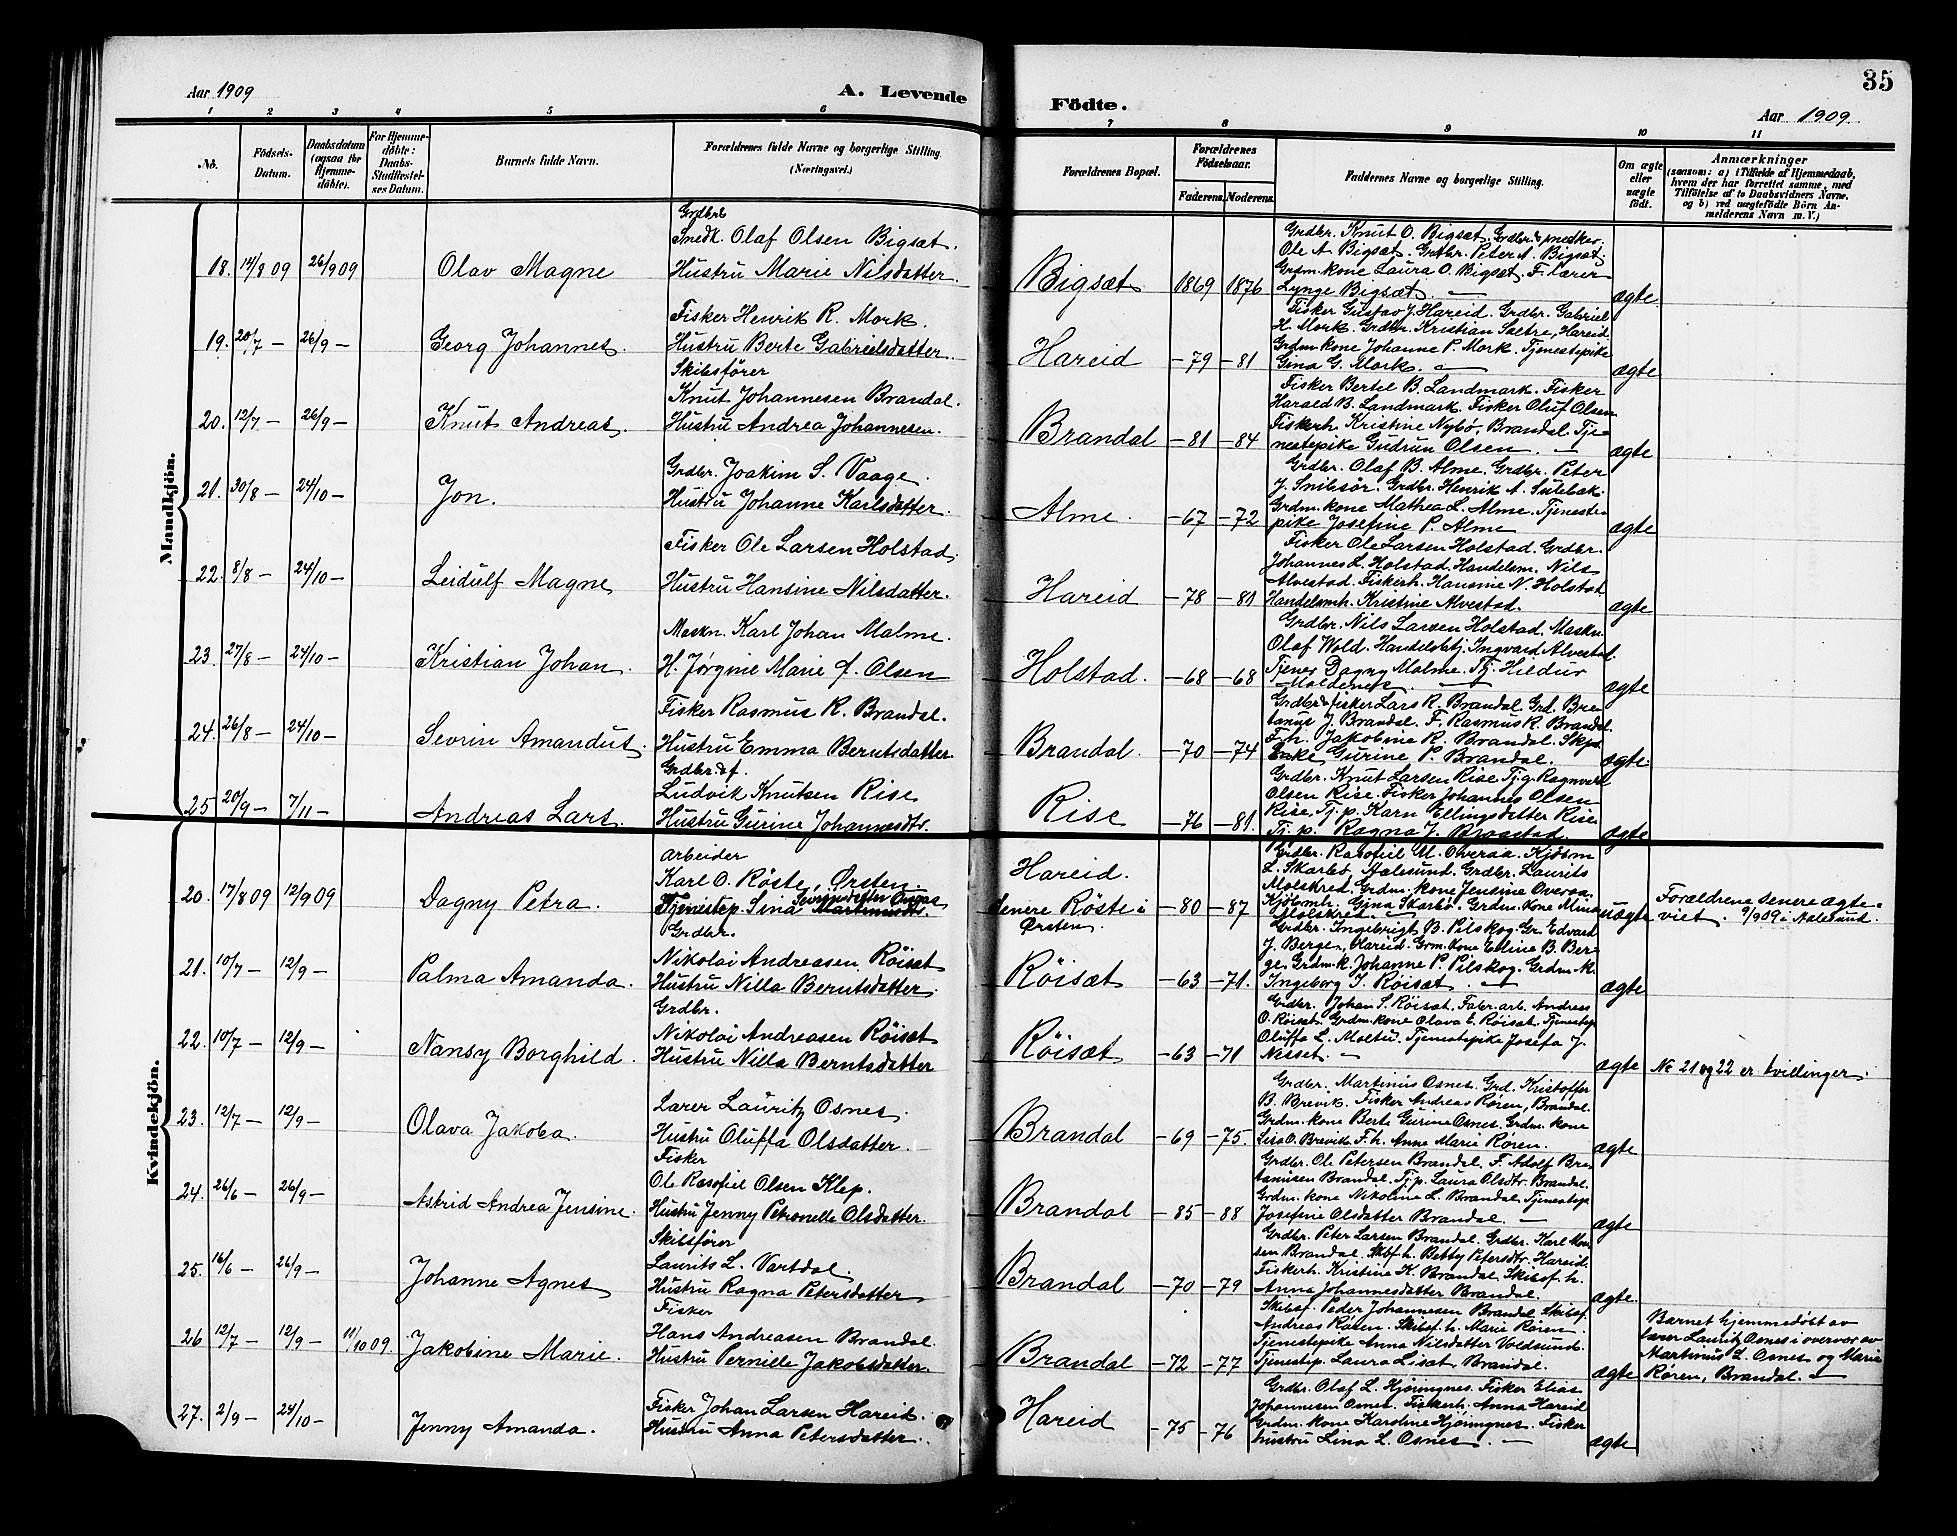 Aar 1909
A. Levende
Födte.
35
Aar 1909.
1 2 3 4 5 6 7 8 9 10 11
No.
Födsels-Datum.
Daabsdatum (ogsaa for Hjemmedöbte).
For Hjemmedöbte: Daabs-Stadfæstelses Datum.
Barnets fulde Navn.
Forældrenes fulde Navne og borgerlige Stilling (Næringsvei.)
Forældrenes Bopæl.
Forældrenes Födselsaar.
Faderens.
Moderens.
Faddernes Navne og borgerlige Stilling.
Om ægte eller uægte födt.
Anmærkninger
(saasom: a) i Tilfælde af Hjemmedaab,
hvem der har forrettet samme, med
Tilföielse af to Daabsvidners Navne,
og b) ved uægtefödte Börn Anmelderens Navn m. V.)
Mandkjön.
18. 14/8 09 26/9 09 Olav Magne
Grdbr &
Snedk. Olaf Olsen Bigsæt.
Hustru Marie Nilsdatter.
Bigsæt 1869 1876
Grdbr. Knut O. Bigsæt. Grdbr & snedker
Ole A. Bigsæt. Grdbr. Peter A. Bigsæt.
Grdm.kone Laura O. Bigsæt. F. Lærer
Lynge Bigsæt. —
ægte
19. 20/7 — 26/9 — Georg Johannes.
Fisker Henrik R. Mork.
Hustru Berte Gabrielsdatter.
Hareid —79 —81
Fisker Gustav J. Hareid. Grdbr. Gabriel
H. Mork. Grdbr. Kristian Sætre, Hareid
Grdm.kone Johanne P. Mork. Tjenestepike
Gina G. Mork. —
ægte
20. 12/7 — 26/9 — Knut Andreas.
Skibsförer
Knut Johannesen Brandal.
Hustru Andrea Johannesen.
Brandal —81 —84
Fisker Bertil B. Landmark. Fisker
Harald B. Landmark. Fisker Oluf Olsen
Fiskerh. Kristine Nybö, Brandal. Tje-
nestepike Gudrun Olsen. —
ægte
21. 30/8 — 24/10 — Jon.
Grdbr. Joakim S. Vaage.
Hustru Johanne Karlsdatter.
Alme. —67 —72
Grdbr. Olaf B. Alme. Grdbr. Peter
J. Snibsör. Grdbr. Henrik A. Sulebak.
Grdm.kone Mathea L. Alme. Tjeneste-
pike Josefine P. Alme
ægte
22. 8/8 — 24/10 — Leidulf Magne
Fisker Ole Larsen Holstad.
Hustru Hansine Nilsdatter.
Hareid —78 —81
Fisker Ole Larsen Holstad. Grdbr.
Johannes L. Holstad. Handelsm. Nils
Alvestad. Fiskerh. Hansine N. Holstad
Handelsmh. Kristine Alvestad.
ægte
23. 27/8 — 24/10 — Kristian Johan.
Maskn. Karl Johan Malme.
H. Jørgine Marie f. Olsen
Holstad. —68 —68
Grdbr. Nils Larsen Holstad. Maskn.
Olaf Wold. Handelsbtj. Ingvard Alvestad.
Tjenes Dagny Malme. Tj. Hildur
Moldenes —
ægte
24. 26/8 — 24/10 — Sevrin Amandus.
Fisker Rasmus R. Brandal.
Hustru Emma Berntsdatter.
Brandal. —70 —74
Grdbr & fisker Lars R. Brandal. Grd. Bre-
tanus J. Brandal. F. Rasmus R. Brandal.
F.h. Jakobine R. Brandal.
Enke Gurine P. Brandal.
ægte
25 20/9 — 7/11 — Andreas Lars.
Grdbr. & f.
Ludvik Knutsen Rise
Hustru Gurine Johannesdtr.
Rise —76 —81.
Grdbr. Knut Larsen Rise Tj.g. Ragnvald
Olsen Rise. Fisker Johannes Olsen
Rise. Tj.p. Karn Ellingsdatter Rise
Tj.p. Ragna J. Brostad.
ægte
Kvindekjön.
20. 17/8 09 12/9 09 Dagny Petra.
Arbeider
Karl O. Röste, Ørsten.
Tjenestep. Sina Martinusdtr.
Hareid.
senere Röste i
Ørsten.
—80 —87
Grdbr. Rasofiel M. Overaa. Kjöbm
L. Skarbö, Aalesund. Grdbr. Laurits
Molskred. Grdm.kone Jensine Overaa.
Kjöbmh. Gina Skarbö. Grdm.kone Mina
Molskred. —
uægte
Forældrene senere ægte-
viet. 9/9 09 i Aalesund.
21. 10/7 — 12/9 — Palma Amanda.
Grdbr.
Nikolai Andreasen Röisæt
Hustru Nilla Berntsdatter.
Röisæt —63 —71.
Grdbr. Ingebrigt B. Pilskog. Gr. Edvard
J. Berge, Hareid. Grm.kone Elline B. Ber-
ge. Grdm.k. Johanne P. Pilskog. Grdm.k.
Ingeborg I. Röisæt. —
ægte
22. 10/7 — 12/9 — Nansy Borghild.
Grdbr.
Nikolai Andreasen Röisæt
Hustru Nilla Berntsdatter
Röisæt —63 —71
Grdbr. Johan S. Röisæt. Fabr.arb. Andreas
O. Röisæt. Grdm.kone Olava E. Röisæt. Tjenestep
Oluffa L. Moltu. Tjenestepike Josefa J.
Nesset. —
ægte
No 21 og 22 er tvillinger.
23. 12/7 — 12/9 — Olava Jakoba.
Lærer Lauritz Osnes.
Hustru Oluffa Olsdatter.
Brandal —69 —75.
Grdbr. Martinus Osnes. Grd. Kristoffer
B. Brevik. Fisker Andreas Røren, Brandal.
Grdm.kone Berte Gurine Osnes. Grdm.kone
Lisa O. Brevik. F.h. Anne Marie Røren.
ægte
24. 26/6 — 26/9 — Astrid Andrea Jensine.
Fisker
Ole Rasofiel Olsen Klep.
Hustru Jenny Petronelle Olsdatter.
Brandal —85 —88
Grdbr. Ole Petersen Brandal. F. Adolf Bre-
tanusen Brandal. Tj.p. Laura Olsdtr. Brandal.
Grdm.kone Nikoline L. Brandal. Tjenestep
Josefine Olsdatter Brandal. —
ægte
25. 16/6 — 26/9 — Johanne Agnes
Skibsförer
Laurits L. Vartdal.
Hustru Ragna Petersdatter
Brandal —70 —79
Grdbr. Peter Larsen Brandal. Grdbr. Karl Mon-
sen Brandal. Skbf.h. Betty Petersdtr. Hareid.
Fiskerh. Kristine K. Brandal. Skibsf.h.
Anna Johannesdatter Brandal.
ægte.
26 12/7 — 12/9 — 11/10 09 Jakobine Marie.
Fisker
Hans Andreasen Brandal.
Hustru Pernille Jakobsdatter
Brandal —72 —77
Skibsf. Peder Johannesen Brandal. Skibsf.
Andreas Røren. Skibsf.h. Marie Røren.
Tjenestepike Anna Nilsdatter Voldsund.
Tjenestep. Laura Lisæt, Brandal.
ægte
Barnet hjemmedöbt av
lærer Lauritz Osnes i overvær av
Martinus L. Osnes og Marie
Røren, Brandal. —
27. 2/9 — 24/10 — Jenny Amanda.
Fisker Johan Larsen Hareid.
Hustru Anna Petersdatter.
Hareid —75 —76
Grdbr. Olaf L. Hjörungnes. Fisker Elias
Johannesen Osnes. Fiskerh. Anna Hareid
Grdm.kone Karoline Hjörungnes. Fisker
hustru Lina L. Osnes. —
ægte